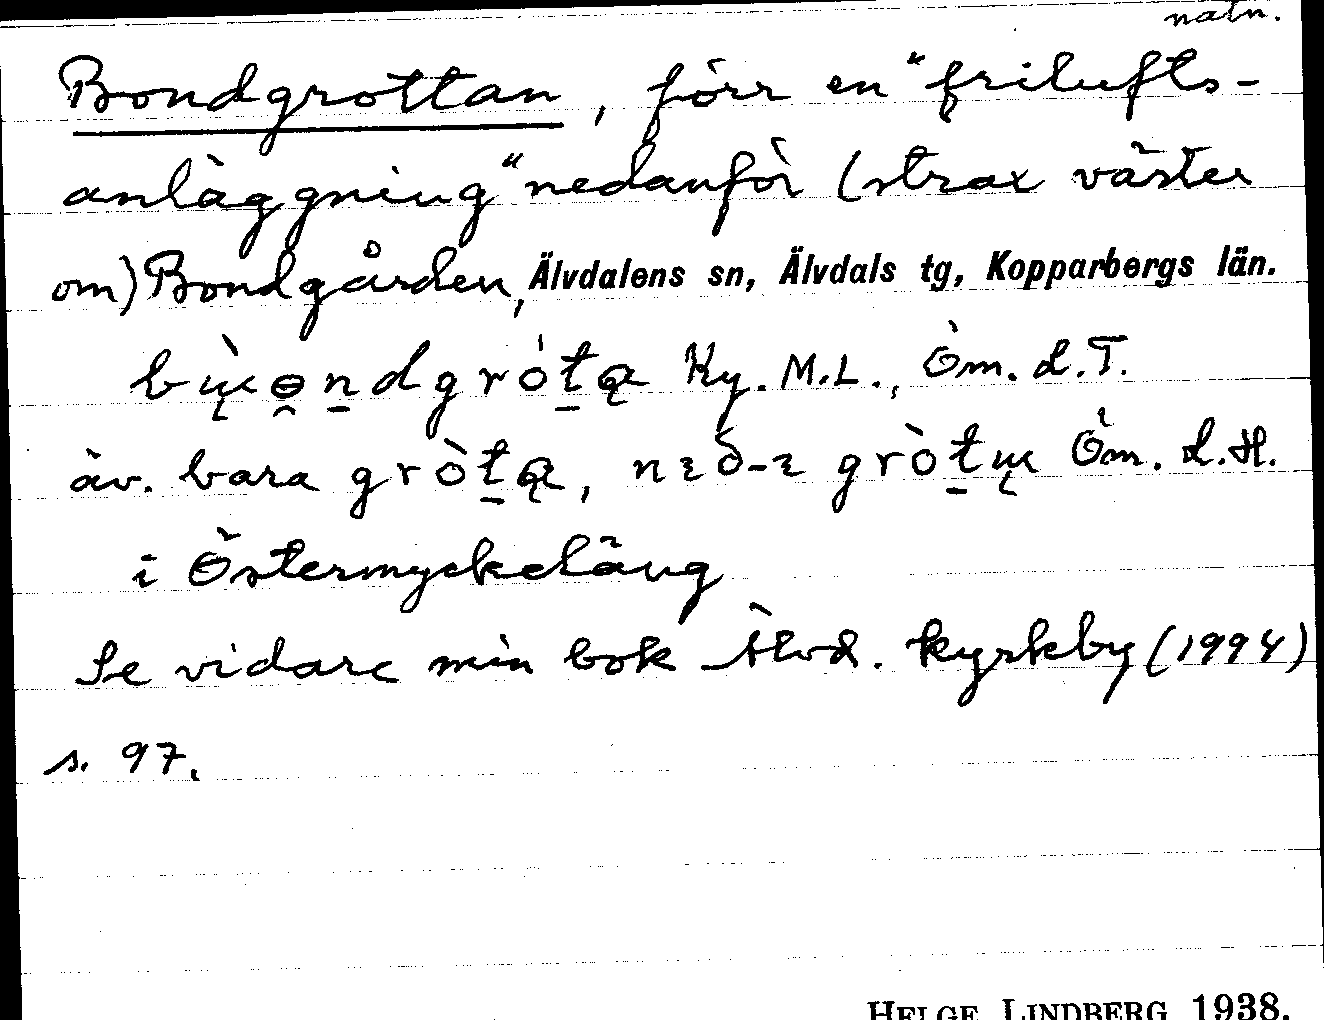 natn.
Bondgrottan, förr en "frilufts-
anläggning" nedanför (strax väster
om) Bondgården, Älvdalens sn, Älvdals tg, Kopparbergs län.
Ky. M.L., Öm. L.T.
äv. bara Öm. L.H.
i Östermyckeläng
Se vidare min bok Älvd. kyrkby (1994)
s. 97.
HELGE LINDBERG 1938.